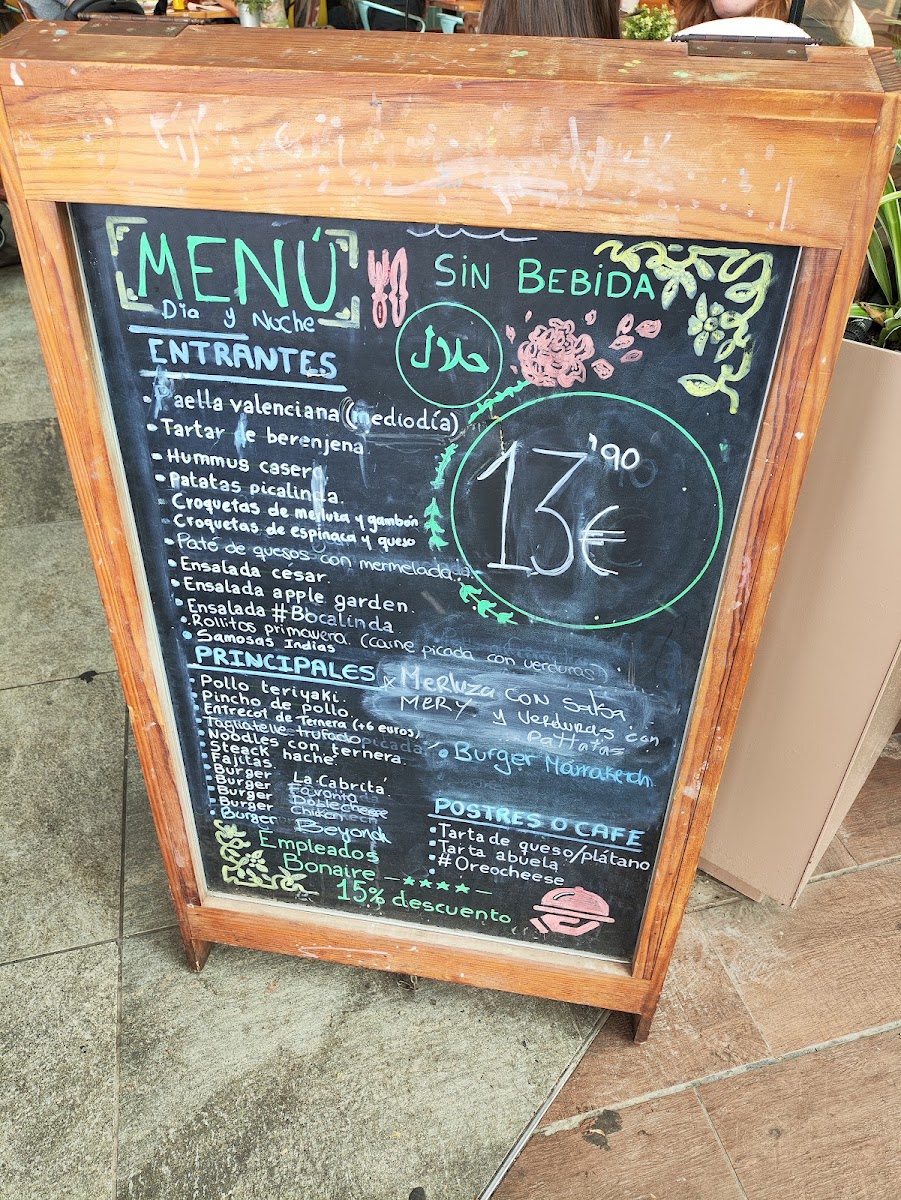 MENÚ
Dia y Noche
SIN BEBIDA
حلال
13'90
€
ENTRANTES
• Paella valenciana (mediodía)
• Tartar de berenjena
• Hummus casero
• Patatas picalinda.
• Croquetas de merluza y gambón
• Croquetas de espinaca y queso
• Paté de quesos con mermelada
• Ensalada césar.
• Ensalada apple garden.
• Ensalada #Bocalinda
• Rollitos primavera. (carne picada con verduras)
• Samosas Indias
PRINCIPALES
• Pollo teriyaki.
• Pincho de pollo.
• Entrecot de Ternera (+6 euros)
• Tagliatelle trufado
• Noodles con ternera
• Steack haché
• Fajitas.
• Burger La Cabrita.
• Burger Favorita
• Burger Doblecheese
• Burger Chicken
• Burger Beyond
x Merluza con salsa
MERY y verduras con
Pattatas
• Burger Marrakech
POSTRES O CAFE
• Tarta de queso/plátano
• Tarta abuela
• # Oreocheese
Empleados
Bonaire
15% descuento